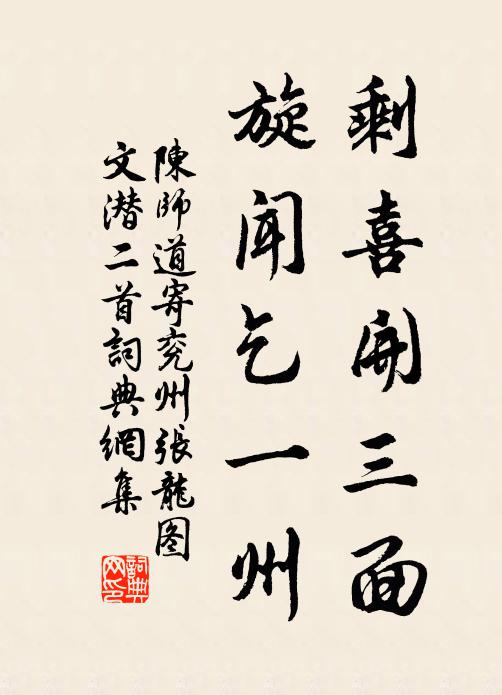 剩喜開三面
旋闻乞一州
陳師道寄兖州張龍图
文潜二首詞典網集
詞典网印